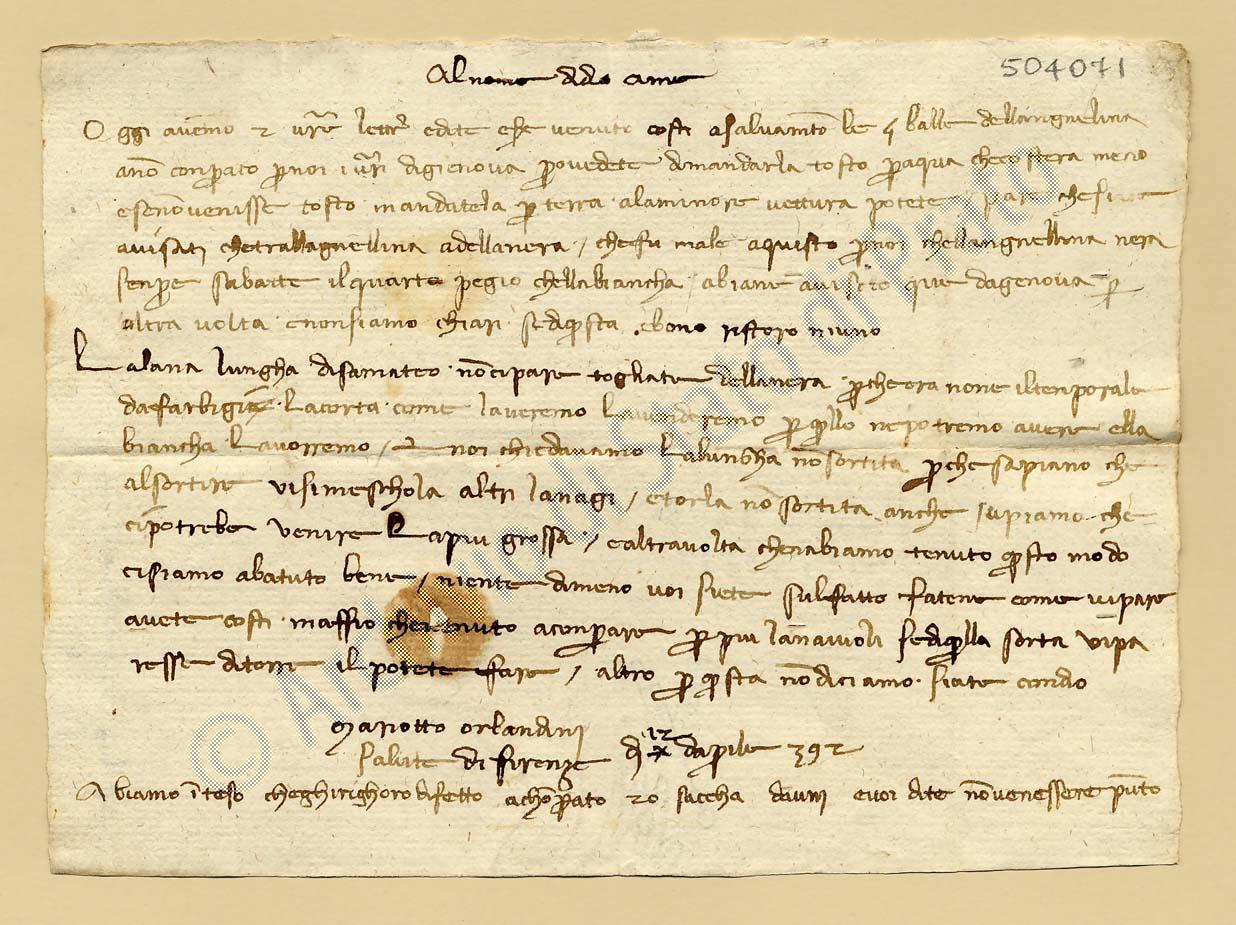 504071
Al nome di dio ame
Oggi avemo 2 vre lettr e dite ese venuto costi a salvamto le balle dell angnelina
ano conprato p noi i vri di gienova provedete di mandarla tosto p aqua che costera meno
e se no venisse tosto mandatela p terra a la minore vettura potete / pare che siate
avisati che tra ll agnellina a della nera / che fu male aquisto p noi che ll angnellina nera
senpre s abatte il quarto pegio che lla biancha / abiane aviso que da genova p
altra volta e non siamo chiari se di qsta e bono ristoro niuno
La lana lungha di samateo no ci pare togliate della nera p che ora non e il tenporale
da far bigi La corta come l averemo La venderemo p qllo ne potremo avere e lla
biancha Lavorremo / e noi chiedavamo La lungha no sortita p che sapiano che
al sortire vi si meschola altri lanagi / e torla no sortita anche sapiamo che
ci potrebe venire La piu grossa / e altra volta che n abiamo tenuto qsto modo
ci siamo abatuto bene / niente di meno voi siete sul fatto fatene come vi pare
avete costi maffio che tenuto a conprare p piu lanaiuoli se di qlla sorta vi pa
resse di torre il potete fare / altro p qsta no diciamo siate con dio
Mariotto Orlandini
salute di firenze di 12 d aprile 392
Abiamo inteso che ghirighoro di fetto a chonprato 20 saccha e voi dite no ven essere punto
© Archivio di Stato di Prato